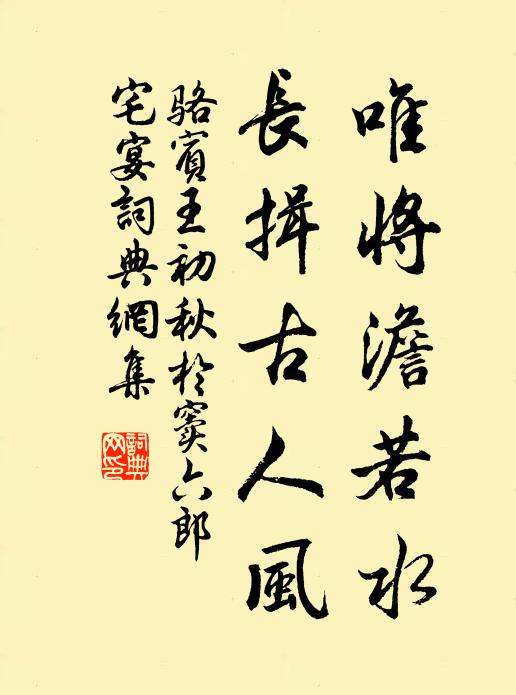 唯將澹若水
長揖古人風
駱賓王初秋於竇六郎
宅宴詞典網集
詞典网印